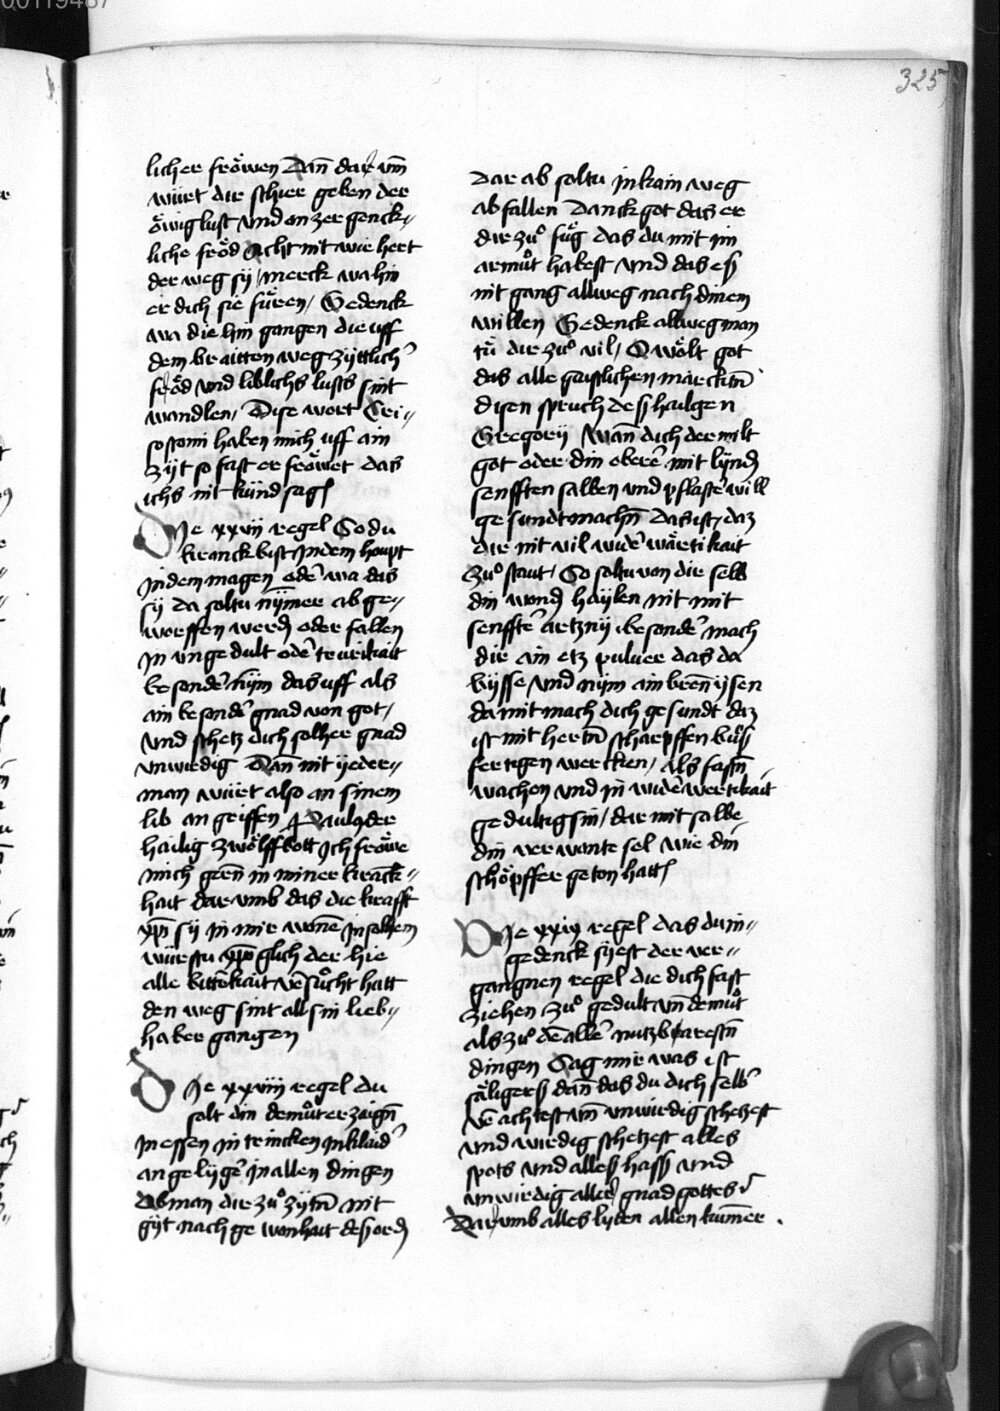 00119487
325
licher fröwen Dañ dar vm̄
würt dir schier geben der
öwig lust vnd on zer genck-
liche fröd Acht nit wie hert
der weg sy / merck wa hin
er dich sie füren / Gedenck
wa die hin gangen die uff
dem braitten weg zyttlich
fröd vnd liblichs lusts sint
wandlen / Dise wort Cri-
sostomi haben mich uff ain
zyt so fast er fröwet das
ichs nit künd sagen
Die xxvij regel So du
kranck bist In dem houpt
In dem magen oder wa das
sy da soltu nÿmer ab ge-
worffen werden oder fallen
In vngedult oder trurikait
besonder nÿm das uff als
ain besonder gnad von got /
vnd schetz dich solher gnad
vnwirdig Dañ nit yeder-
man würt also an sinem
lib an griffen Paulus der
hailig zwölffbott Ich fröwe
mich gern in miner kranck-
hait dar vmb das die krafft
xpi sy in mir wonen In solhem
würstu xpo glich der hie
alle bitterkait versücht hatt
den weg sint all sin lieb-
haber gangen
Die xxviij regel du
solt din demüt er zaigen
In essen in trincken In klaider
an geligen In allen dingen
Ob man dir zuo zyten nit
gyt nach ge wonhait des orden
Dar ab soltu In kain weg
ab fallen Danck got das er
dir zuo füg das du mit im
armuot habest vnd das es
nit gang allweg nach dinem
willen Gedenck allweg man
tü dir zuo vil / O wölt got
das alle gaistlichen marckten
disen spruch des hailgen
Gregorij Wañ dich der milt
got oder din obern mit lynden
senfften salben vnd pflaster will
gesundt machen Das ist / daz
dir nit vil wider wärtikait
zuo staut / So soltu von dir selb
din wonden haylen nit mit
senffter artzny besonder mach
dir ain etz puluer das da
bysse / vnd nym ain bren ysen
da mit mach dich gesundt daz
ist mit herten scharpffen buos
fertigen wercken / als fasten
wachen vnd in widerwertikait
gedultig sin / dar mit salbe
din ver wonte sel wie din
schöpffer geton hatt
Die xxix regel das du in-
gedenck syest der ver-
gangnen regel die dich fast
ziehen zuo gedult vnd demuot
als zuo den aller nutzbaresten
dingen Sag mir was ist
säligers dañ das du dich selber
verachtest vm̄ vnwirdig schetzest
vnd wirdig schetzest alles
spots vnd alles hass vnd
vnwirdig aller gnad gottes
Dar vmb alles lyden allen kumer .